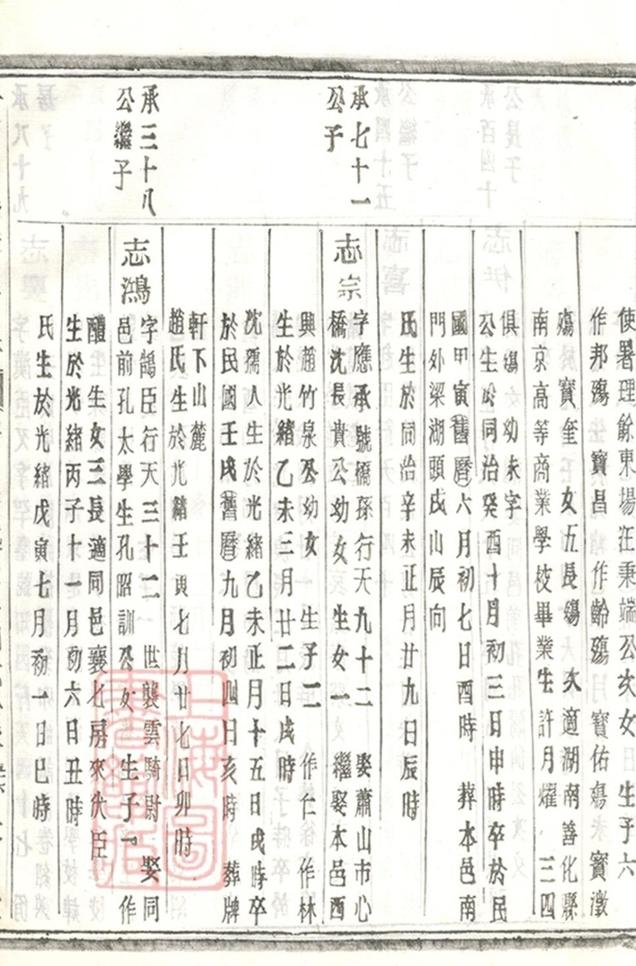 使署理餘東場在秉端公次女 生子六
作邦殤 寶昌 作齡殤 寶佑殤 寶澂
殤 寶奎 女五長殤 次適湖南善化縣
南京高等商業學校畢業生許月燿 三四
俱殤 幼未字
公生於同治癸酉十月初三日申時卒於民
國甲寅舊曆六月初七日酉時 葬本邑南
門外梁湖頭戌山辰向
氏生於同治辛未正月廿九日辰時
承七十一
公子
志宗
字應承號橋孫行天九十二 娶蕭山市心
橋沈長貴公幼女 生女一 繼娶本邑西
興趙竹泉公幼女 生子二 作仁 作林
生於光緒乙未三月廿二日戌時
沈孺人生於光緒乙未正月十五日戌時卒
於民國壬戌舊曆九月初四日亥時 葬牌
軒下山麓
趙氏生於光緒壬寅七月廿七日卯時
承三十八
公繼子
志鴻
字鵠臣行天三十二 世襲雲騎尉 娶同
邑前孔太學生孔昭訓公女 生子一 作
醴 生女三長適同邑襄七房來伏臣
生於光緒丙子十一月初六日丑時
氏生於光緒戊寅七月初 日巳時